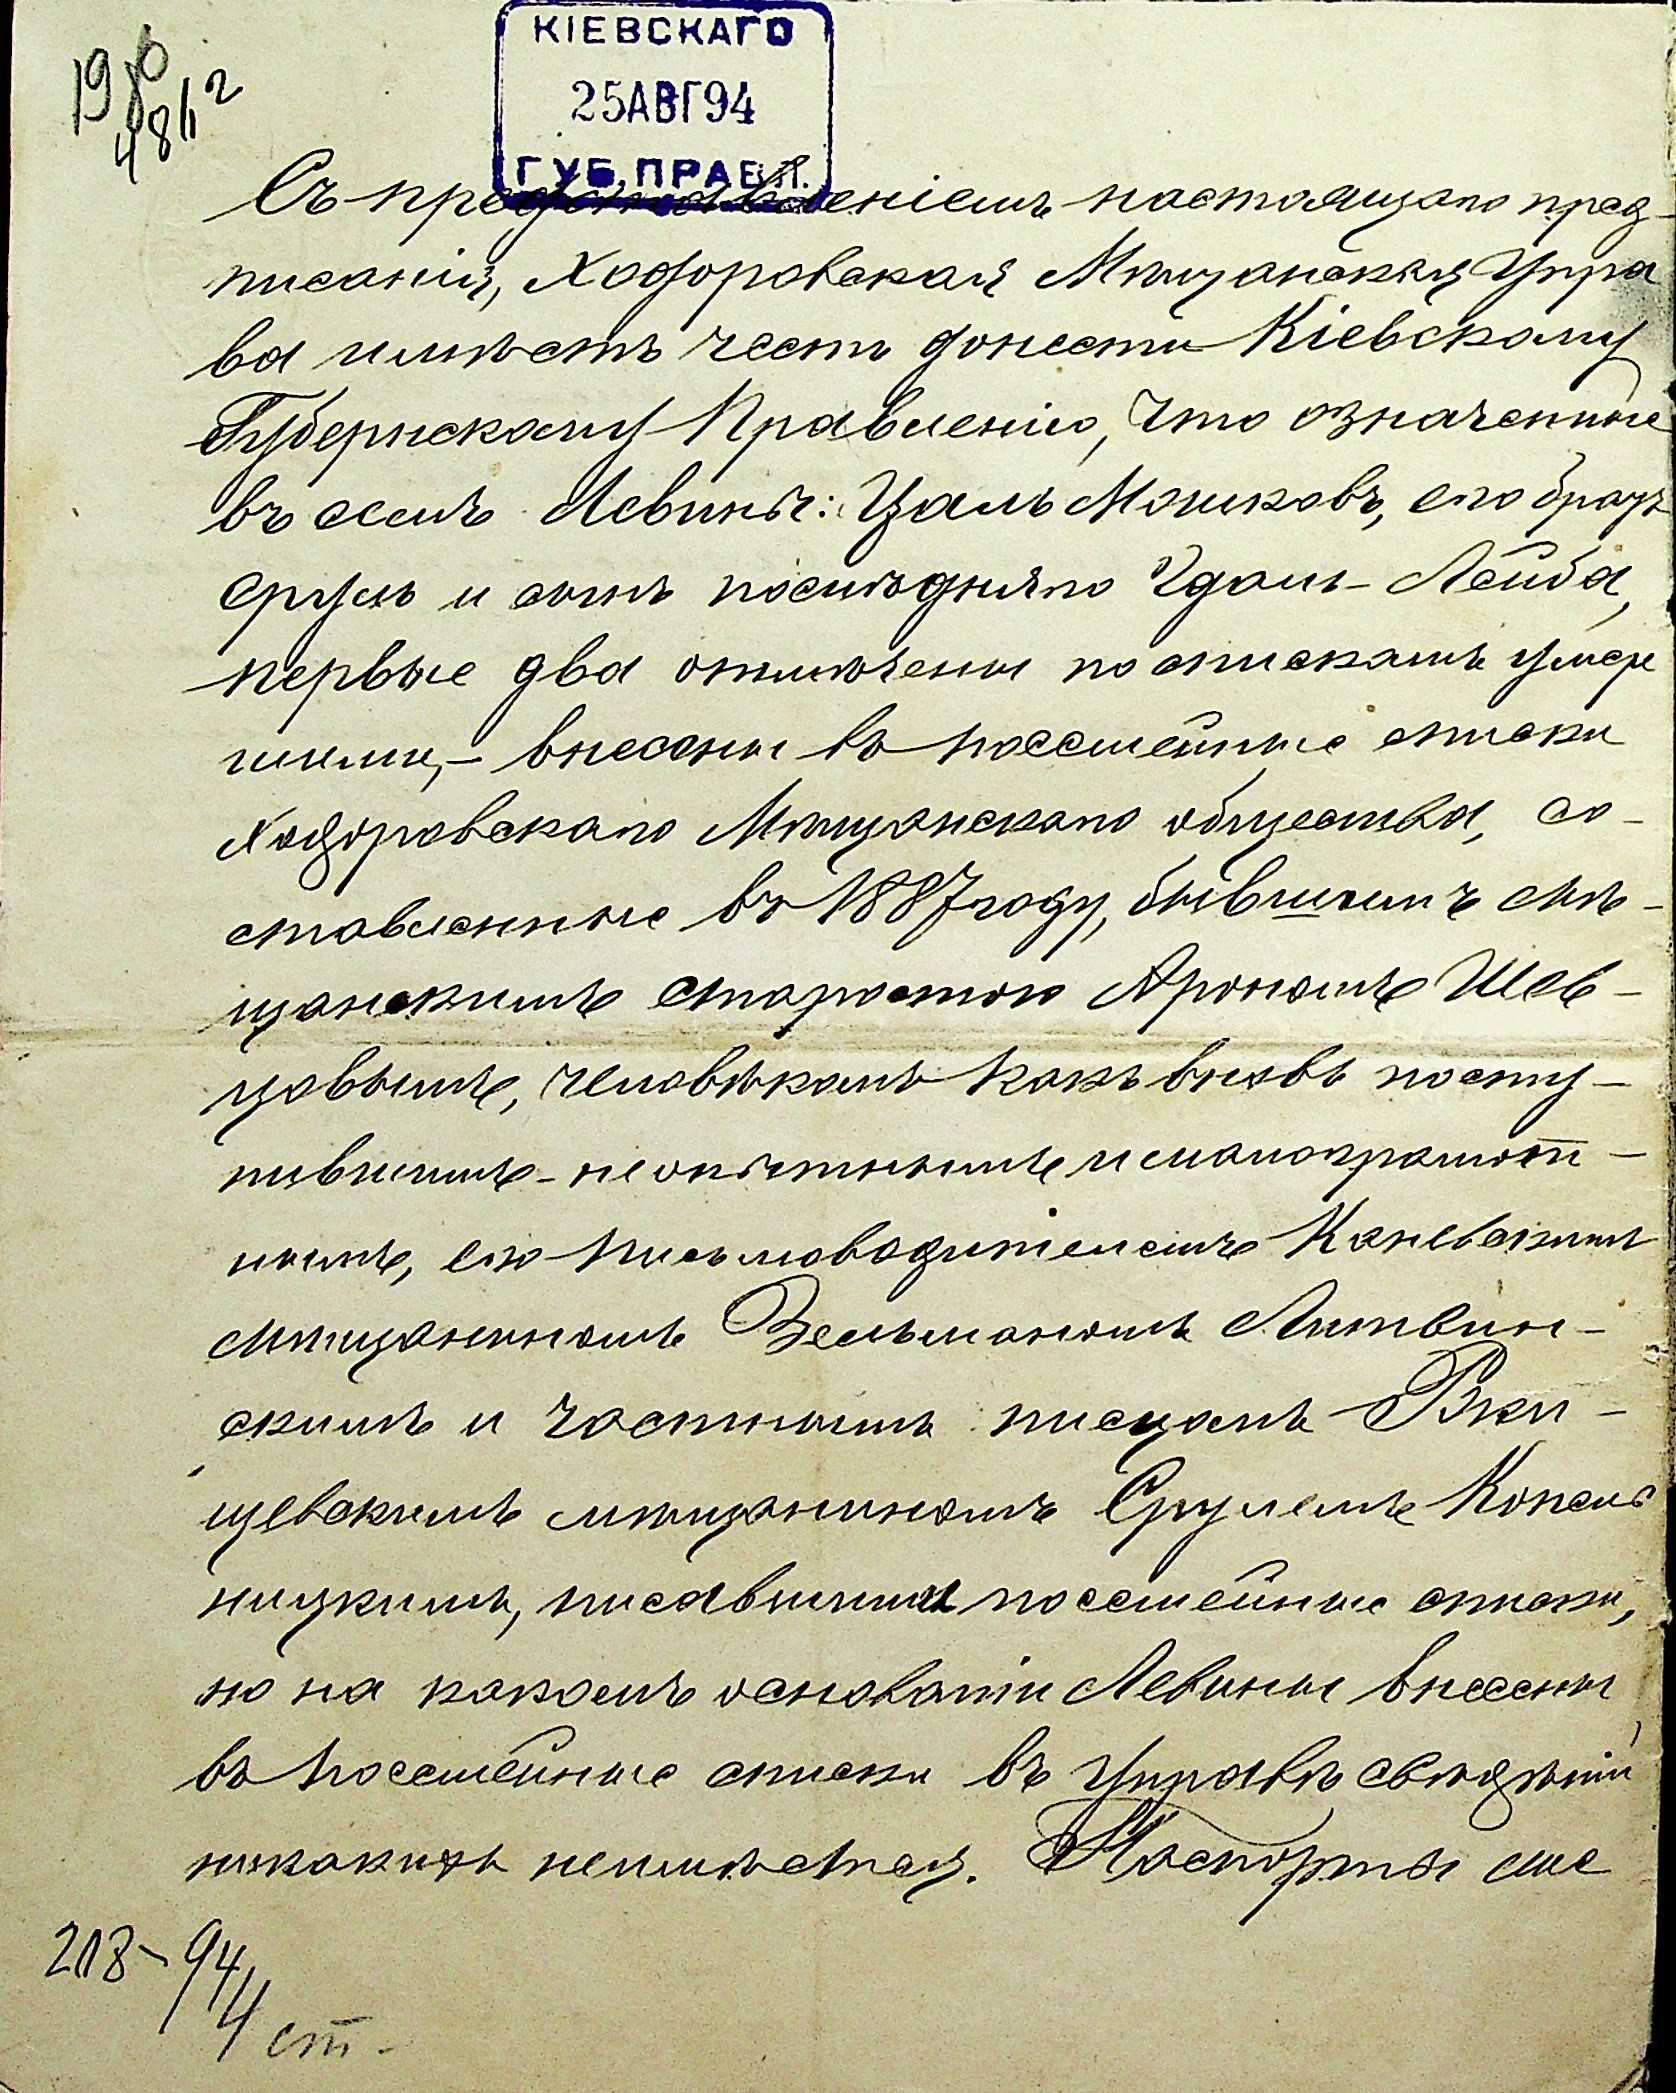 КІЕВСКАГО
25АВГ94
ГУБ. ПРАВЛ.
198
4812
Съ представленіемъ настоящаго пред-
писанія, Ходоровская Мѣщанская Упра
ва имѣетъ честь донести Кіевскому
Губернскому Правленію, что означенные
въ семъ Левины: Цаль Мошковъ, его братъ
Сруль и сынъ послѣдняго Идаль-Лейба,
первые два отмѣчены по спискамъ умер
шими,- внесены въ посемейные списки
Ходоровскаго Мѣщанскаго общества, со-
ставленные въ 1887 году, бывшимъ мѣ-
щанскимъ старостою Арономъ Шев-
цовымъ, человѣкомъ какъ вновь посту-
пившимъ-неопытнымъ и малограмот-
нымъ, его письмоводителемъ Каневскимъ
мѣщаниномъ Зельманомъ Литвин-
скимъ и частнымъ писцомъ Ржи-
щевскимъ мѣщаниномъ Срулемъ Копель
ницкимъ, писавшими посемейные списки,
но на какомъ основаніи Левины внесены
въ посемейные списки въ Управѣ свѣдѣній
никакихъ неимѣется. Паспорты же
218-94
4 ст.